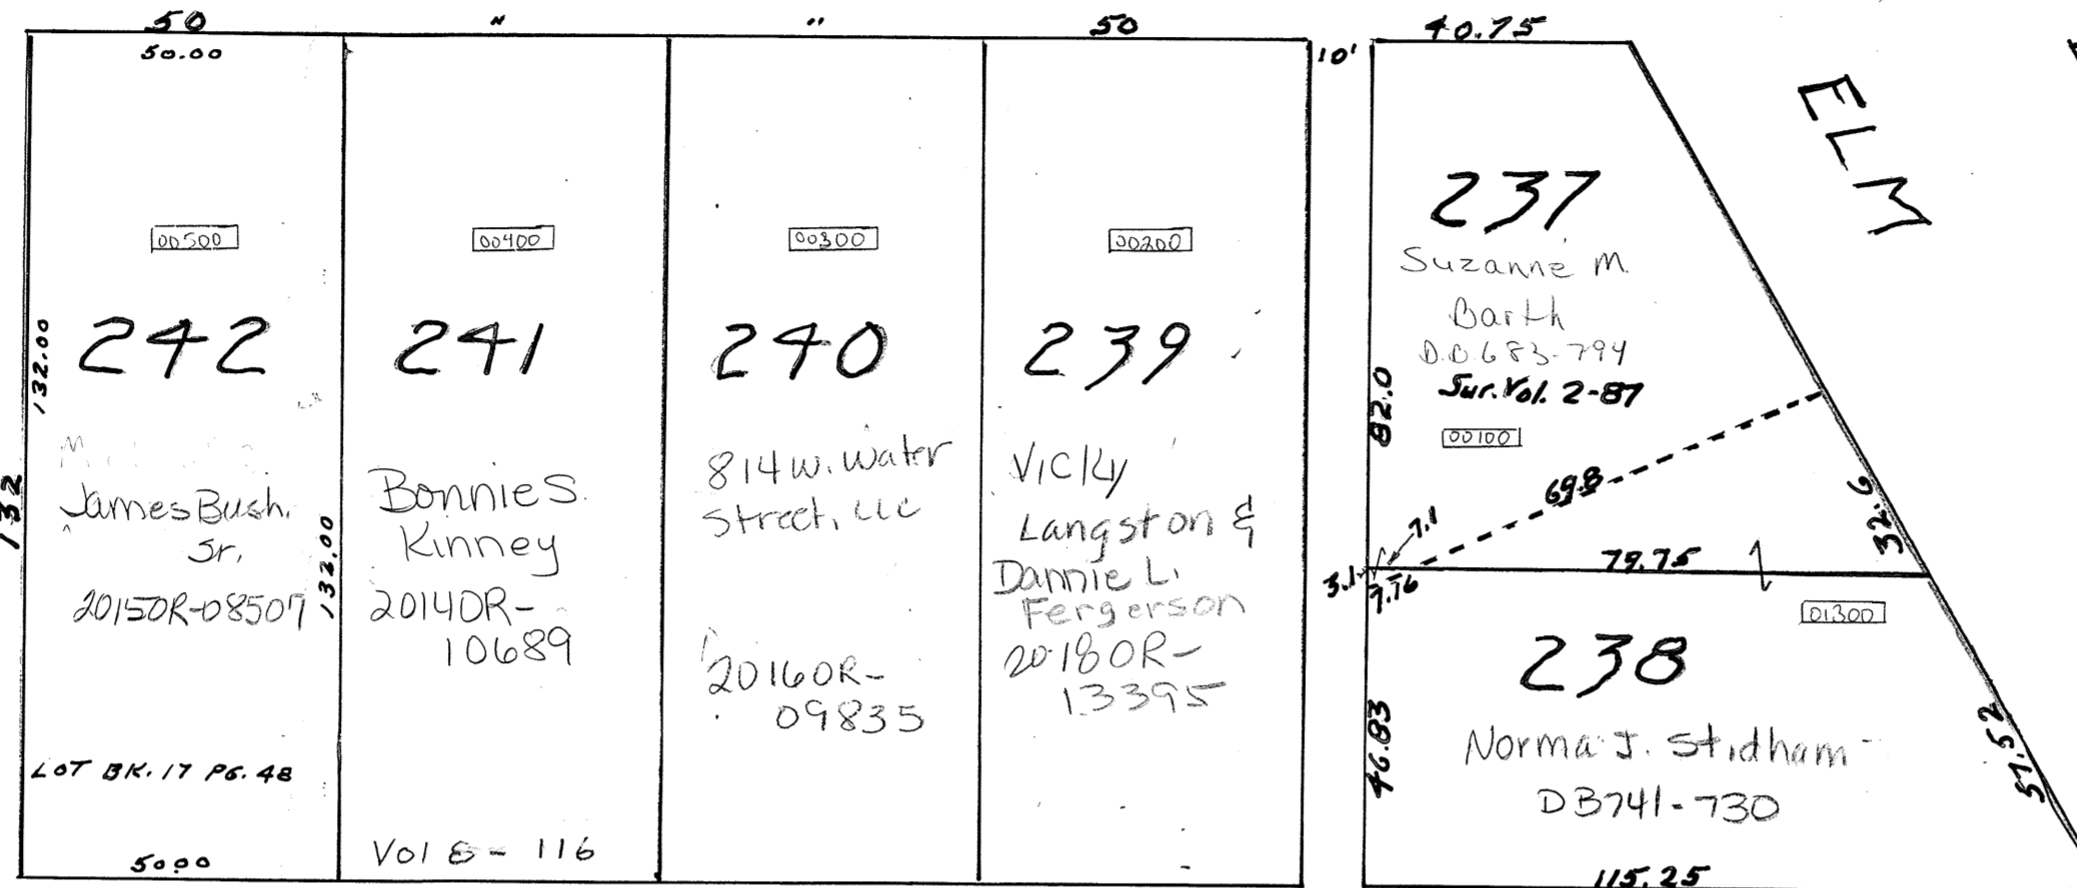 50 " " 50
50.00
00500
242
132.00
132
James Bush,
Sr.
20150R-08507
132.00
LOT BK. 17 PG. 48
50.00
00400
241
Bonnie S.
Kinney
20140R-
10689
Vol 8 - 116
00300
240
814 W. Water
Street, LLC
20160R-
09835
00200
239
Vicky
Langston &
Dannie L.
Fergerson
20180R-
13395
10'
40.75
ELM
237
Suzanne M.
Barth
D.B. 683-794
Sur. Vol. 2-87
00100
82.0
69.8
32.6
7.1
3.1
7.76
79.75
01300
238
Norma J. Stidham
DB741-730
46.83
57.52
115.25